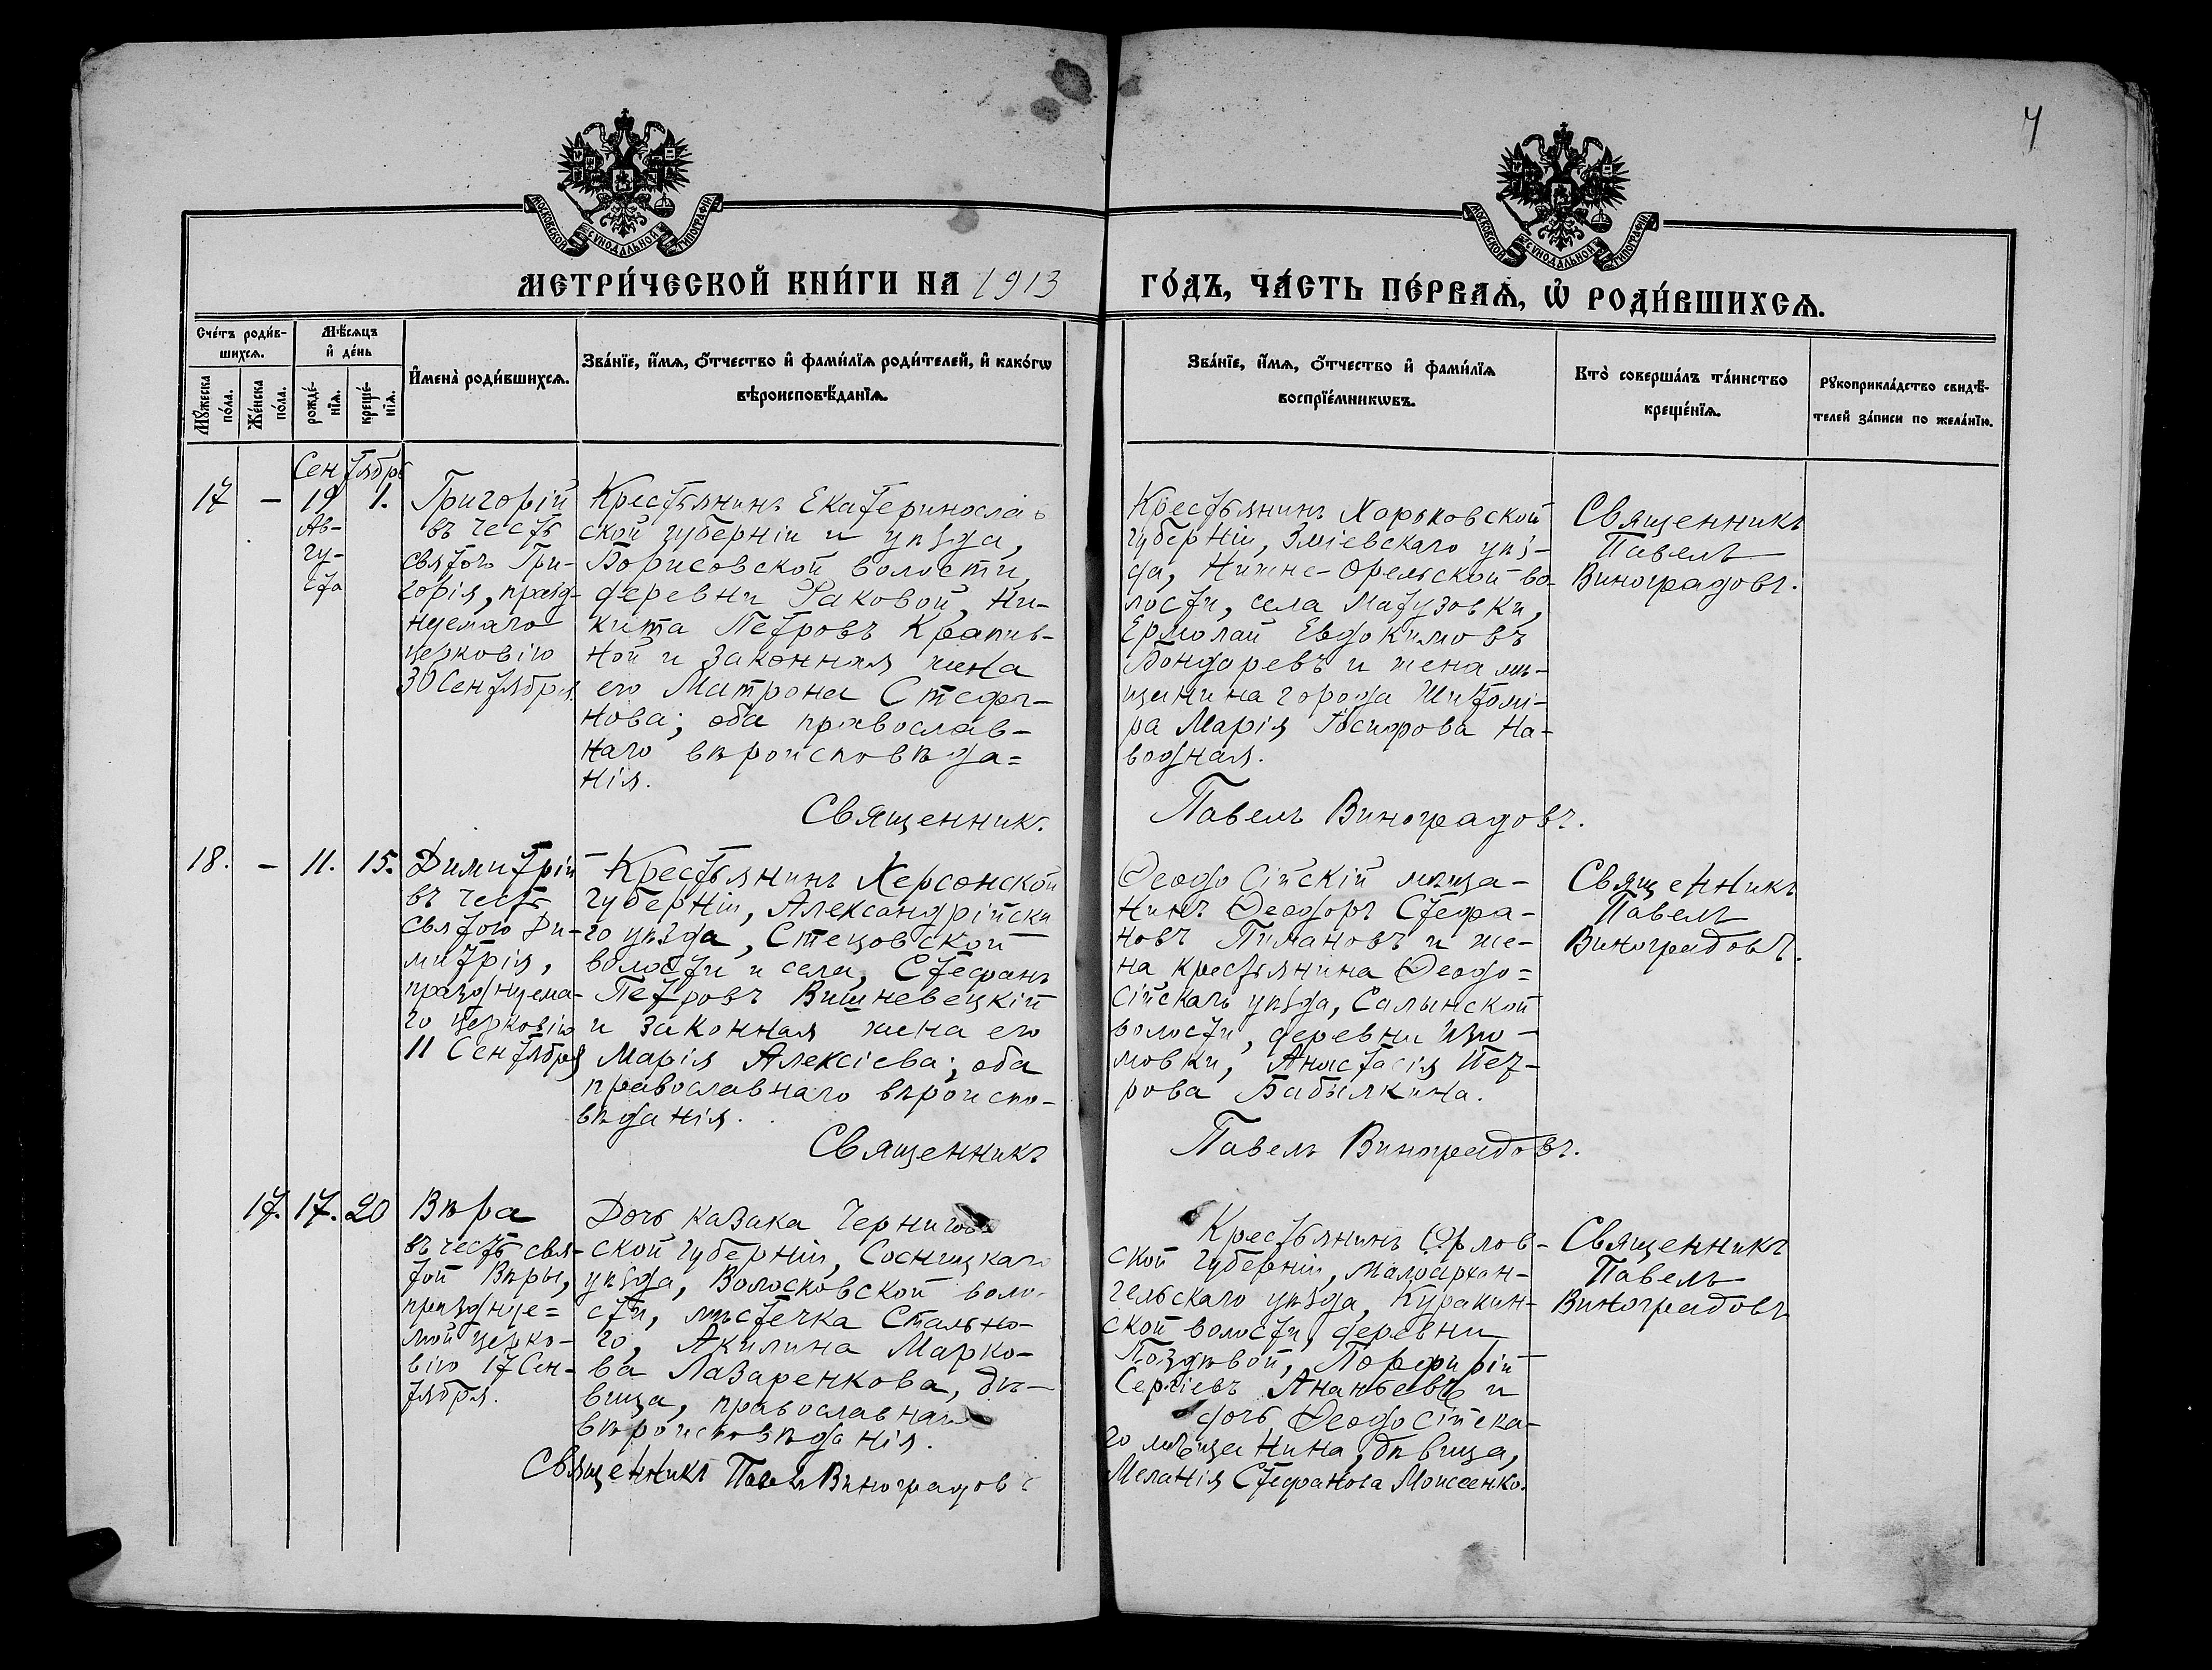 7
МОСКОВСКОЙ СѴНОДАЛЬНОЙ ТИПОГРАФІИ
МОСКОВСКОЙ СѴНОДАЛЬНОЙ ТИПОГРАФІИ
МЕТРИ́ЧЕСКОЙ КНИ́ГИ НА 1913
ГО́ДЪ, ЧА́СТЬ ПЕ́РВАѦ, Ѡ҆ РОДИ́ВШИХСѦ.
Сче́тъ роди́в-
шихсѧ.
Мѣ́сѧцъ
и҆ де́нь
Мꙋ́жеска
по́ла.
Же́нска
по́ла.
рожде́-
нїѧ.
креще́-
нїѧ.
И҆мена̀ роди́вшихсѧ.
Зва́нїе, и҆́мѧ, ѻ҆́тчество и҆ фами́лїѧ роди́телей, и҆ како́гѡ
вѣроисповѣ́данїѧ.
Зва́нїе, и҆́мѧ, ѻ҆́тчество и҆ фами́лїѧ
воспрїе́мникѡвъ.
Кто̀ соверша́лъ та́инство
креще́нїѧ.
Рꙋкоприкла́дство свидѣ́-
телей за́писи по жела́нїю.
Сентябрь
17 — 19 1.
Ав-
гу-
ста
Григорій
въ честь
святого Гри-
горія, празд-
нуемаго
церковію
30 Сентября
Крестьянинъ Екатеринослав
ской губерніи и уѣзда,
Борисовской волости,
деревни Раковой, Ни-
кита Петровъ Крапив-
ной и законная жена
его Матрона Стефа-
нова; оба православ-
наго вѣроисповѣда=
нія.
Священник.
Крестьянинъ Харьковской
губерніи, Зміевскаго уѣз-
да, Нижне-Орельской во-
лости, села Мазузовки,
Ермолай Евдокимовъ
Бондаревъ и жена мѣ-
щанина города Житоми-
ра Марія Іосифова На-
водная.
Павелъ Виноградовъ.
Священникъ
Павелъ
Виноградовъ.
18. — 11. 15.
Димитрій
въ честь
святого Ди-
митрія,
празднуема-
го церковію
11 Сентября
Крестьянинъ Херсонской
губерніи, Александрійска
го уѣзда, Стецовской
волости и села, Стефанъ
Петровъ Вишневецкій
и законная жена его
Марія Алексіева; оба
православнаго вѣроиспо-
вѣданія.
Священникъ
Ѳеодосійскій мѣща-
нинъ Ѳеодоръ Стефа-
новъ Пимановъ и же-
на крестьянина Ѳеодо=
сійскаго уѣзда, Салынской
волости, деревни Изю-
мовки, Анастасія Пет-
рова Бабылкина.
Павелъ Виноградовъ.
Священникъ
Павелъ
Виноградовъ.
17. 17. 20
Вѣра
въ честь свя-
той Вѣры,
празднуе=
мой церко-
вію 17 Сен-
тября.
Дочь казака Чернигов
ской губерніи, Сосницкаго
уѣзда, Волосковской воло-
сти, мѣстечка Стально-
го, Акилина Марко-
ва Лазаренкова, дѣ-
вица, православнаго
вѣроисповѣданія.
Священникъ Павелъ Виноградовъ
Крестьянинъ Орлов-
ской губерніи, Малоархан-
гельскаго уѣзда, Куракин-
ской волости, деревни
Поздѣвой, Порфирій
Сергіевъ Ананьевъ и
дочь Ѳеодосійска-
го мѣщанина, дѣвица,
Меланія Стефанова Моисеенко.
Священникъ
Павелъ
Виноградовъ